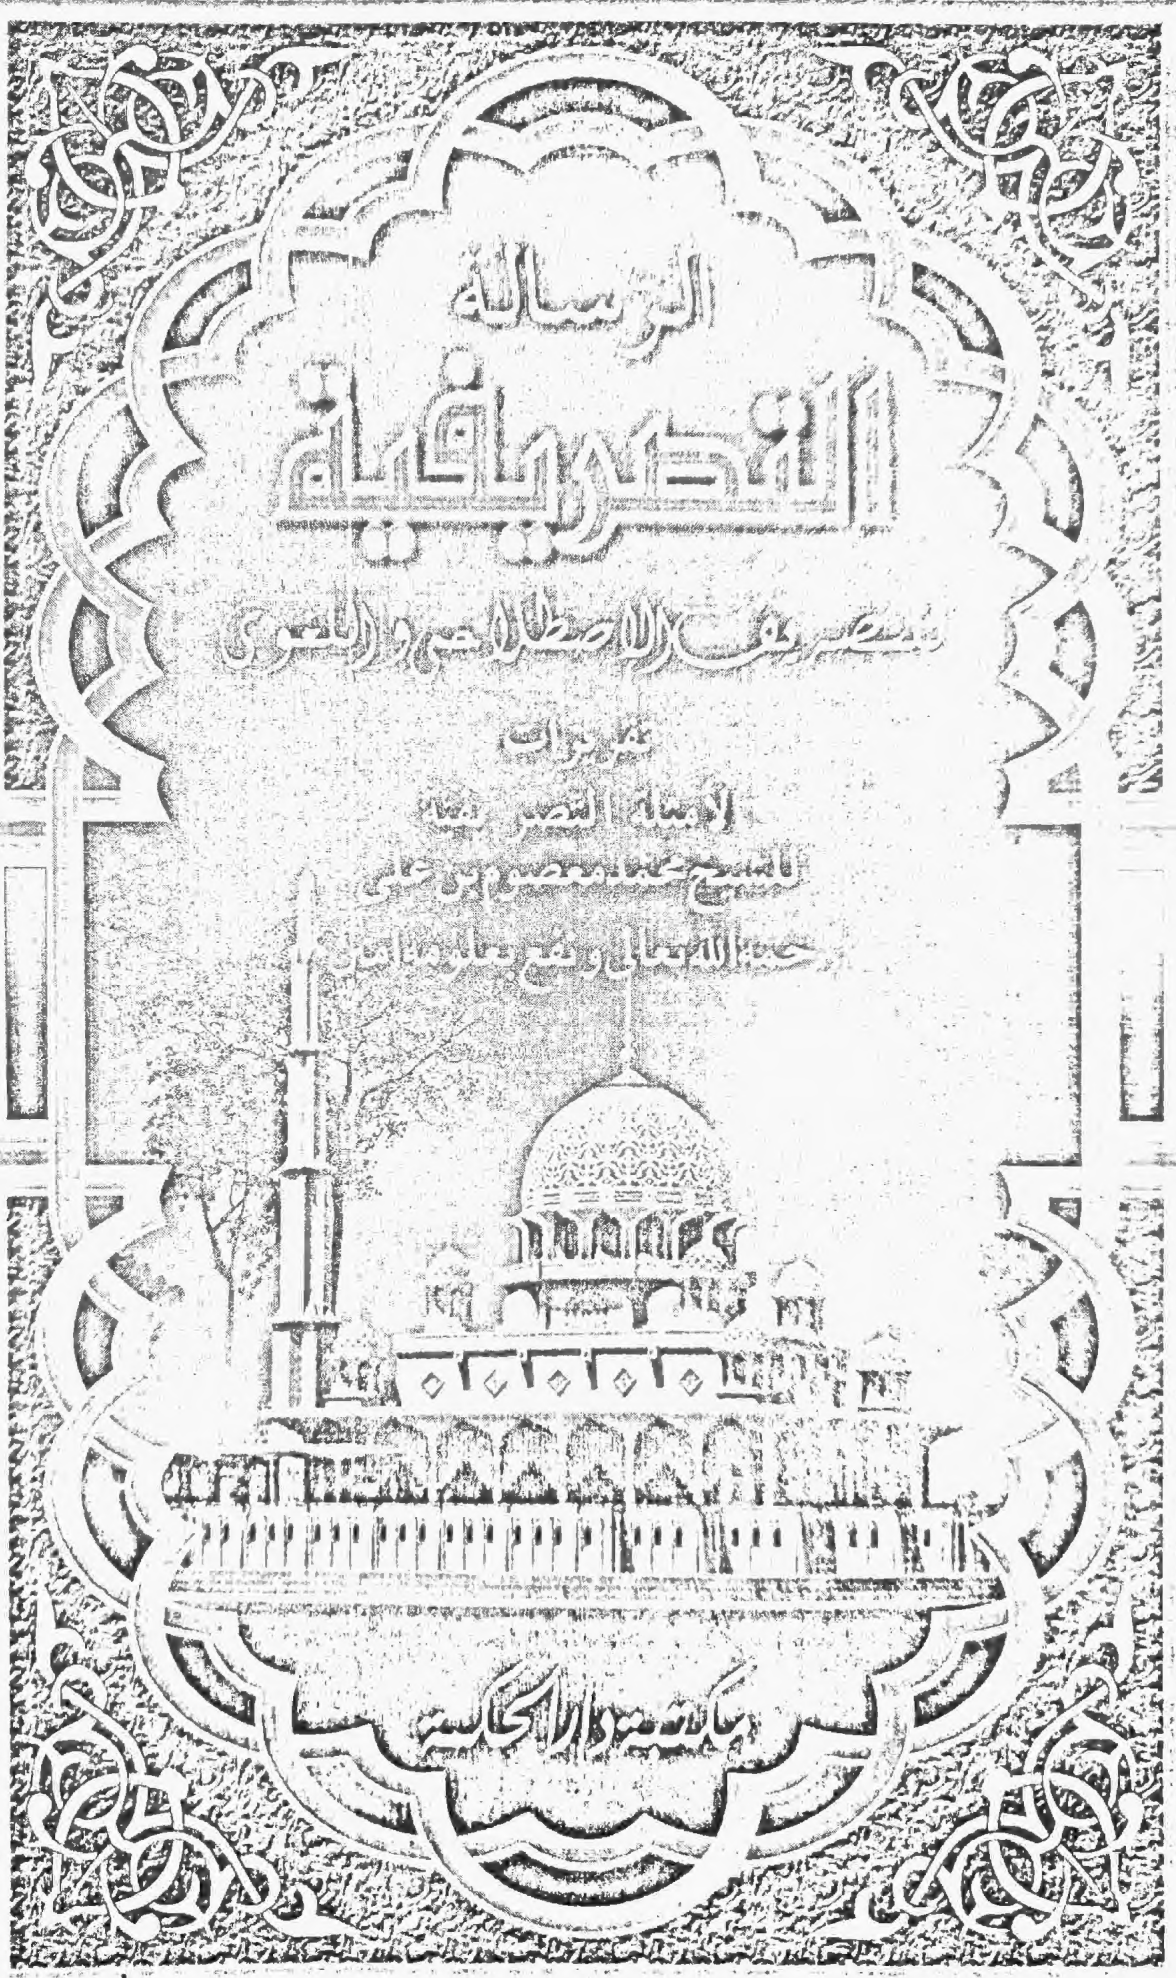 الرسالة
التصريفية
للتصريف الاصطلاحي واللغوي
تقريرات
لامثلة التصريفية
للشيخ محمد معصوم بن علي
رحمه الله تعالى ونفع بعلومه امين
مكتبة دار الحكمة